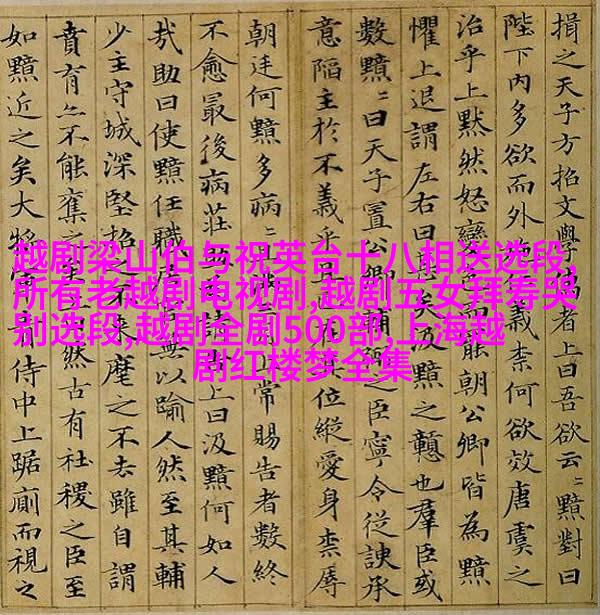 越剧梁山伯与祝英台十八相送选段,
所有老越剧电视剧,越剧五女拜寿哭
别选段,越剧全剧500部,上海越
剧红楼梦全集
揖之天子方招文學者上曰吾欲云〻黯對曰
陛下內多欲而外義柰何欲效唐虞之
治乎上黙然怒變而罷朝公卿皆為黯
懼上退謂左右曰矣汲黯之戇也羣臣或
數黯〻曰天子置公之臣寧令從諛承
意陷主於不義乎且位縱愛身柰辱
朝廷何黯多病上常賜告者數終
不愈最後病莊上曰汲黯何如人
㢤助曰使黯任職無以踰人然至其輔
少主守城深堅招來麾之不去雖自謂
賁育亦不能奪之然古有社稷之臣至
如黯近之矣大將侍中上踞廁而視之